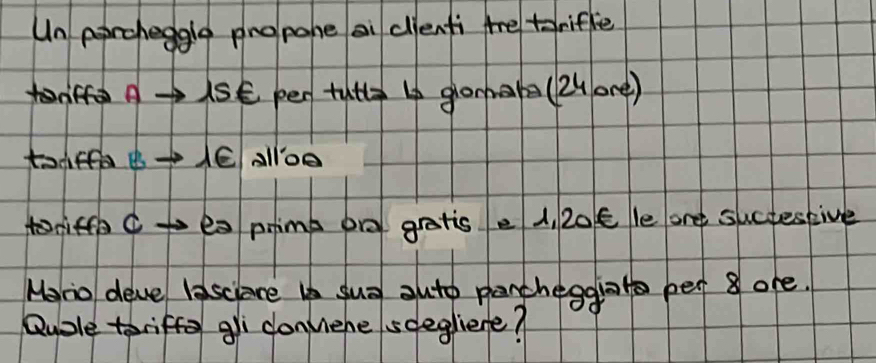 Un parcheggio propone ai clienti tre tariffe
tariffa A → 15€ per tutta la giornata (24 ore)
tariffa B → 1€ all'oa
tariffa C → la prima ora gratis e 1,20€ le ore successive
Mario deve lasciare la sua auto parcheggiata per 8 ore.
Quale tariffa gli conviene scegliere?